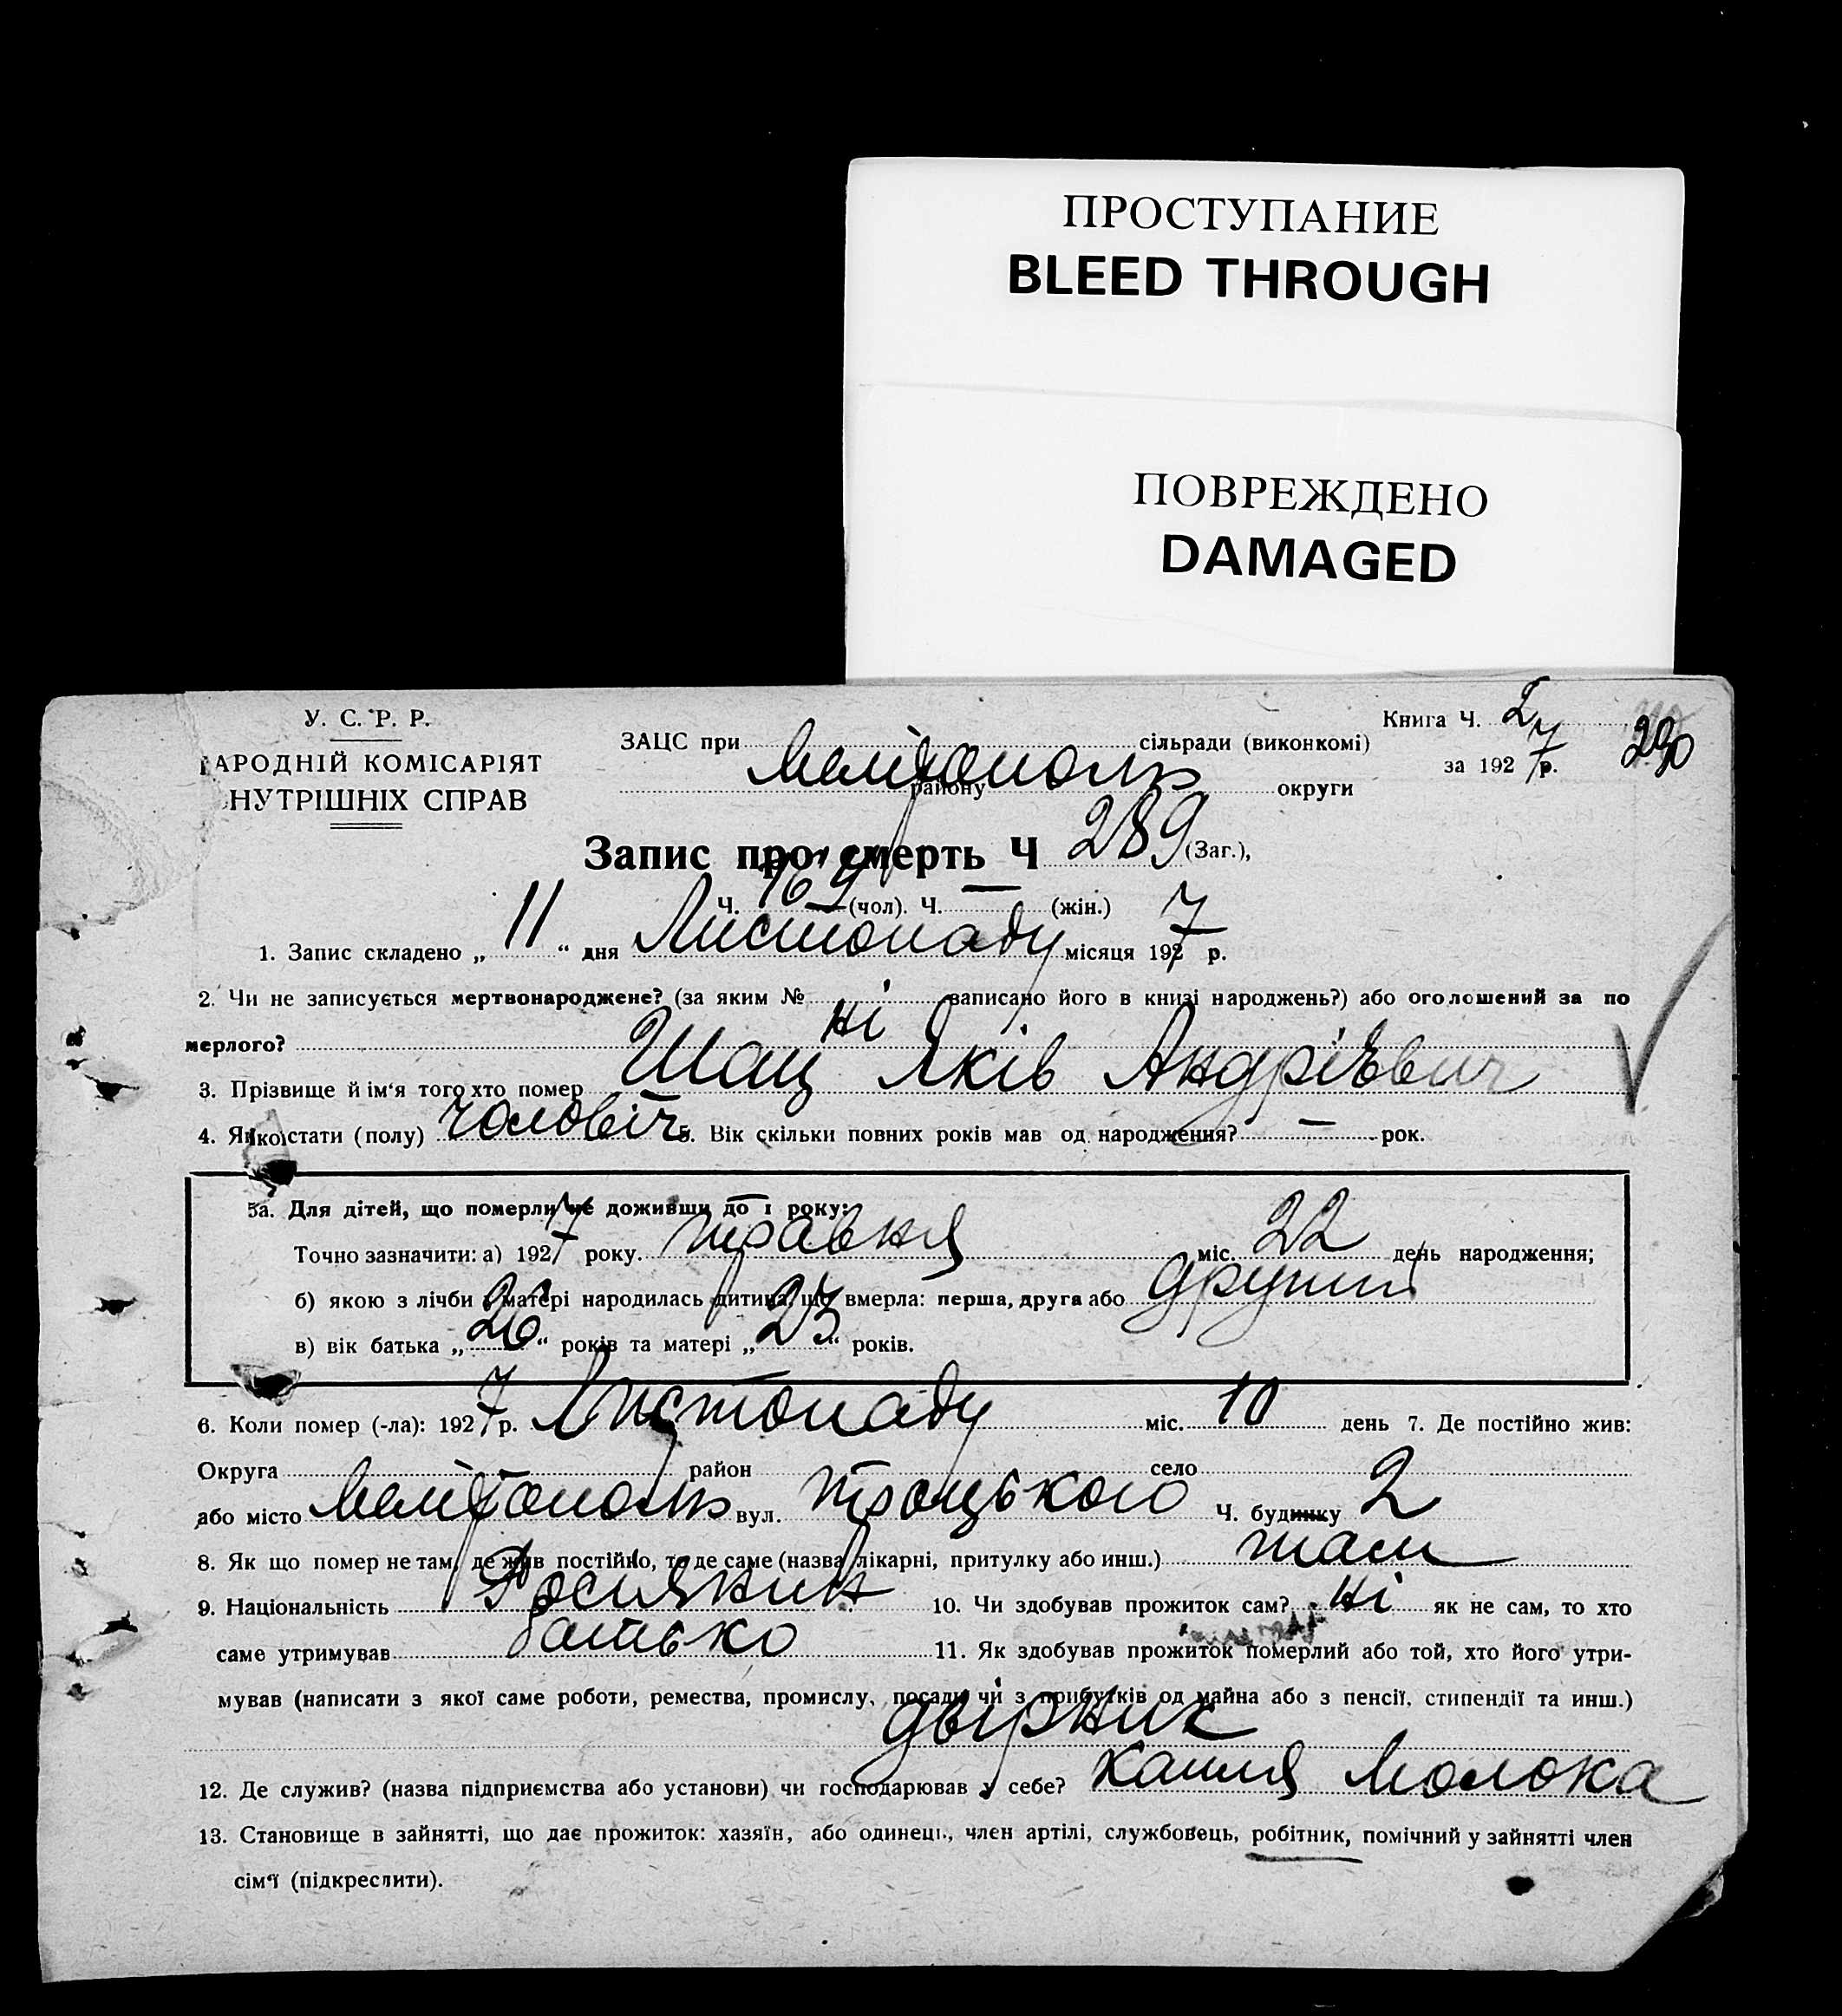 ПРОСТУПАНИЕ
BLEED THROUGH
ПОВРЕЖДЕНО
DAMAGED
У. С. Р. Р.
АРОДНІЙ КОМІСАРІЯТ
НУТРІШНІХ СПРАВ
Книга Ч. I
ЗАЦС при сільради (виконкомі)
за 1927 р.
290
Мелітополь
району округи
Запис про смерть Ч 289 (Заг.),
Ч. 164 (чол). Ч. — (жін.)
1. Запис складено „ 11 “ дня Листопаду місяця 1927 р.
2. Чи не записується мертвонароджене? (за яким № записано його в книзі народжень?) або оголошений за по
мерлого? ні
3. Прізвище й ім'я того хто помер Шац Яків Андрієвич
4. Якої стати (полу) чоловіч 5. Вік скільки повних років мав од народження? — рок.
5а. Для дітей, що померли не доживши до 1 року:
Точно зазначити: а) 1927 року. травня міс. 22 день народження;
б) якою з лічби у матері народилась дитина, що вмерла: перша, друга або
в) вік батька „ 26 “ років та матері „ 23 “ років.
6. Коли помер (-ла): 1927 р. Листопаду міс. 10 день 7. Де постійно жив:
Округа район село
або місто Мелітополь вул. Троцького Ч. будинку 2
8. Як що помер не там, де жив постійно, то де саме (назва лікарні, притулку або инш.) там
9. Національність Росиянин 10. Чи здобував прожиток сам? ні як не сам, то хто
саме утримував батько 11. Як здобував прожиток померлий або той, хто його утри-
мував (написати з якої саме роботи, ремества, промислу, посади чи з прибутків од майна або з пенсії, стипендії та инш.)
двірник
12. Де служив? (назва підприємства або установи) чи господарював у себе? Капля Молока
13. Становище в зайнятті, що дає прожиток: хазяїн, або одинець, член артілі, службовець, робітник, помічний у зайнятті член
сім'ї (підкреслити).